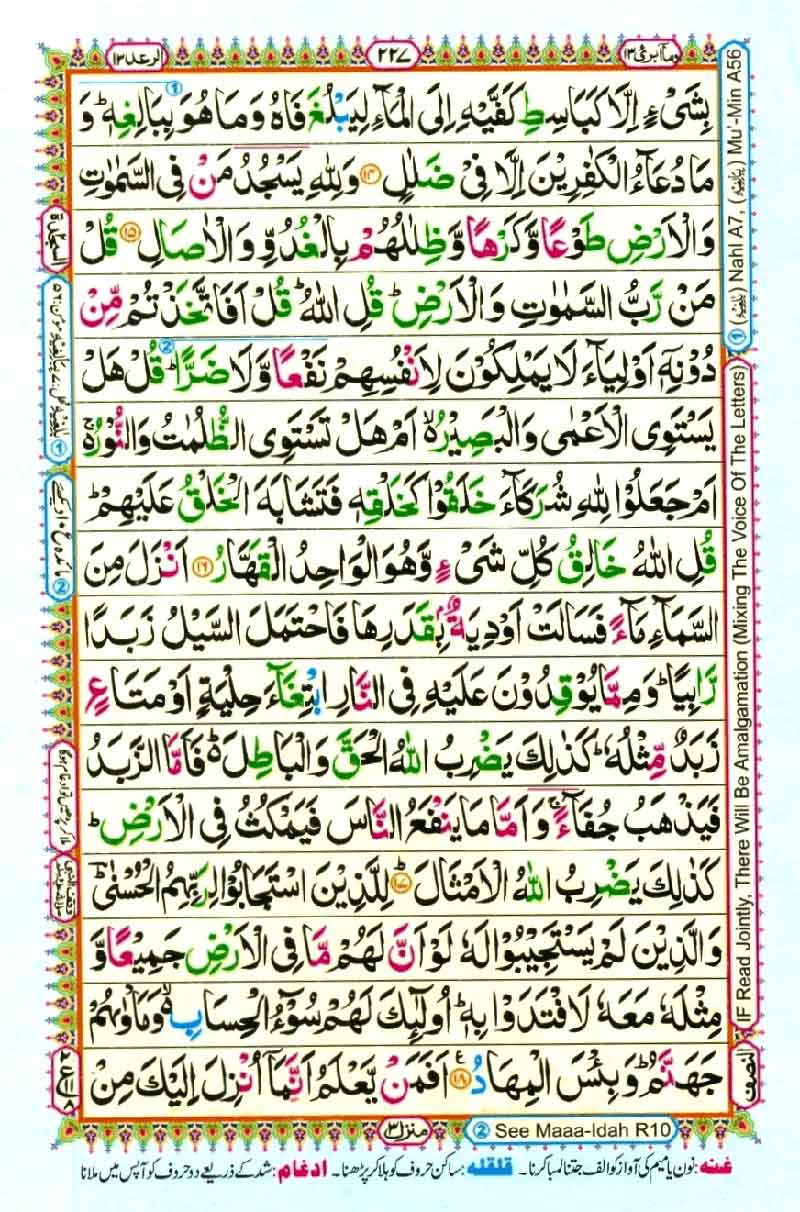 الرعد ١٣
٢٢٧
وما ابرئ ١٣
بِشَیْءٍ اِلَّا كَبَاسِطِ كَفَّیْهِ اِلَی الْمَآءِ لِیَبْلُغَ فَاهُ وَمَا هُوَ بِبَالِغِهٖ ؕ وَ
مَا دُعَآءُ الْكٰفِرِیْنَ اِلَّا فِیْ ضَلٰلٍ ﴿۱۴﴾ وَلِلّٰهِ یَسْجُدُ مَنْ فِی السَّمٰوٰتِ
وَالْاَرْضِ طَوْعًا وَّكَرْهًا وَّظِلٰلُهُمْ بِالْغُدُوِّ وَالْاٰصَالِ ﴿۱۵﴾ قُلْ
مَنْ رَّبُّ السَّمٰوٰتِ وَالْاَرْضِ ؕ قُلِ اللّٰهُ ؕ قُلْ اَفَاتَّخَذْتُمْ مِّنْ
دُوْنِهٖۤ اَوْلِیَآءَ لَا یَمْلِكُوْنَ لِاَنْفُسِهِمْ نَفْعًا وَّلَا ضَرًّا ؕ قُلْ هَلْ
یَسْتَوِی الْاَعْمٰی وَالْبَصِیْرُ ۙ اَمْ هَلْ تَسْتَوِی الظُّلُمٰتُ وَالنُّوْرُ ۚ
اَمْ جَعَلُوْا لِلّٰهِ شُرَكَآءَ خَلَقُوْا كَخَلْقِهٖ فَتَشَابَهَ الْخَلْقُ عَلَیْهِمْ ؕ
قُلِ اللّٰهُ خَالِقُ كُلِّ شَیْءٍ وَّهُوَ الْوَاحِدُ الْقَهَّارُ ﴿۱۶﴾ اَنْزَلَ مِنَ
السَّمَآءِ مَآءً فَسَالَتْ اَوْدِیَةٌۢ بِقَدَرِهَا فَاحْتَمَلَ السَّیْلُ زَبَدًا
رَّابِیًا ؕ وَمِمَّا یُوْقِدُوْنَ عَلَیْهِ فِی النَّارِ ابْتِغَآءَ حِلْیَةٍ اَوْ مَتَاعٍ
زَبَدٌ مِّثْلُهٗ ؕ كَذٰلِكَ یَضْرِبُ اللّٰهُ الْحَقَّ وَالْبَاطِلَ ؕ۬ فَاَمَّا الزَّبَدُ
فَیَذْهَبُ جُفَآءً ۚ وَاَمَّا مَا یَنْفَعُ النَّاسَ فَیَمْكُثُ فِی الْاَرْضِ ؕ
كَذٰلِكَ یَضْرِبُ اللّٰهُ الْاَمْثَالَ ﴿۱۷﴾ لِلَّذِیْنَ اسْتَجَابُوْا لِرَبِّهِمُ الْحُسْنٰی ؔؕ
وَالَّذِیْنَ لَمْ یَسْتَجِیْبُوْا لَهٗ لَوْ اَنَّ لَهُمْ مَّا فِی الْاَرْضِ جَمِیْعًا وَّ
مِثْلَهٗ مَعَهٗ لَافْتَدَوْا بِهٖ ؕ اُولٰٓئِكَ لَهُمْ سُوْٓءُ الْحِسَابِ ۙ۬ وَمَاْوٰىهُمْ
جَهَنَّمُ ؕ وَبِئْسَ الْمِهَادُ ﴿۱۸﴾ اَفَمَنْ یَّعْلَمُ اَنَّمَاۤ اُنْزِلَ اِلَیْكَ مِنْ
Mu'-Min A56
Nahl A7,
IF Read Jointly, There Will Be Amalgamation (Mixing The Voice Of The Letters)
السجدة
النصف
منزل ۳
② See Maaa-Idah R10
غنه: نون یا میم کی آواز کو الف جتنا لمبا کرنا۔ قلقله: ساکن حروف کو ہلا کر پڑھنا۔ ادغام: شد کے ذریعے دو حروف کو آپس میں ملانا